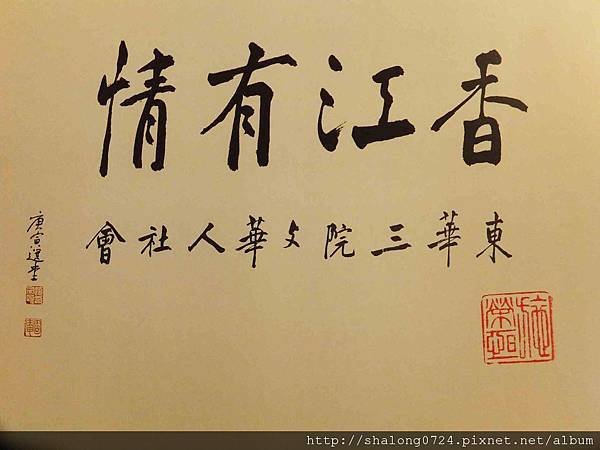 香江有情
東華三院与華人社會
庚寅選堂
http://shalong0724.pixnet.net/album